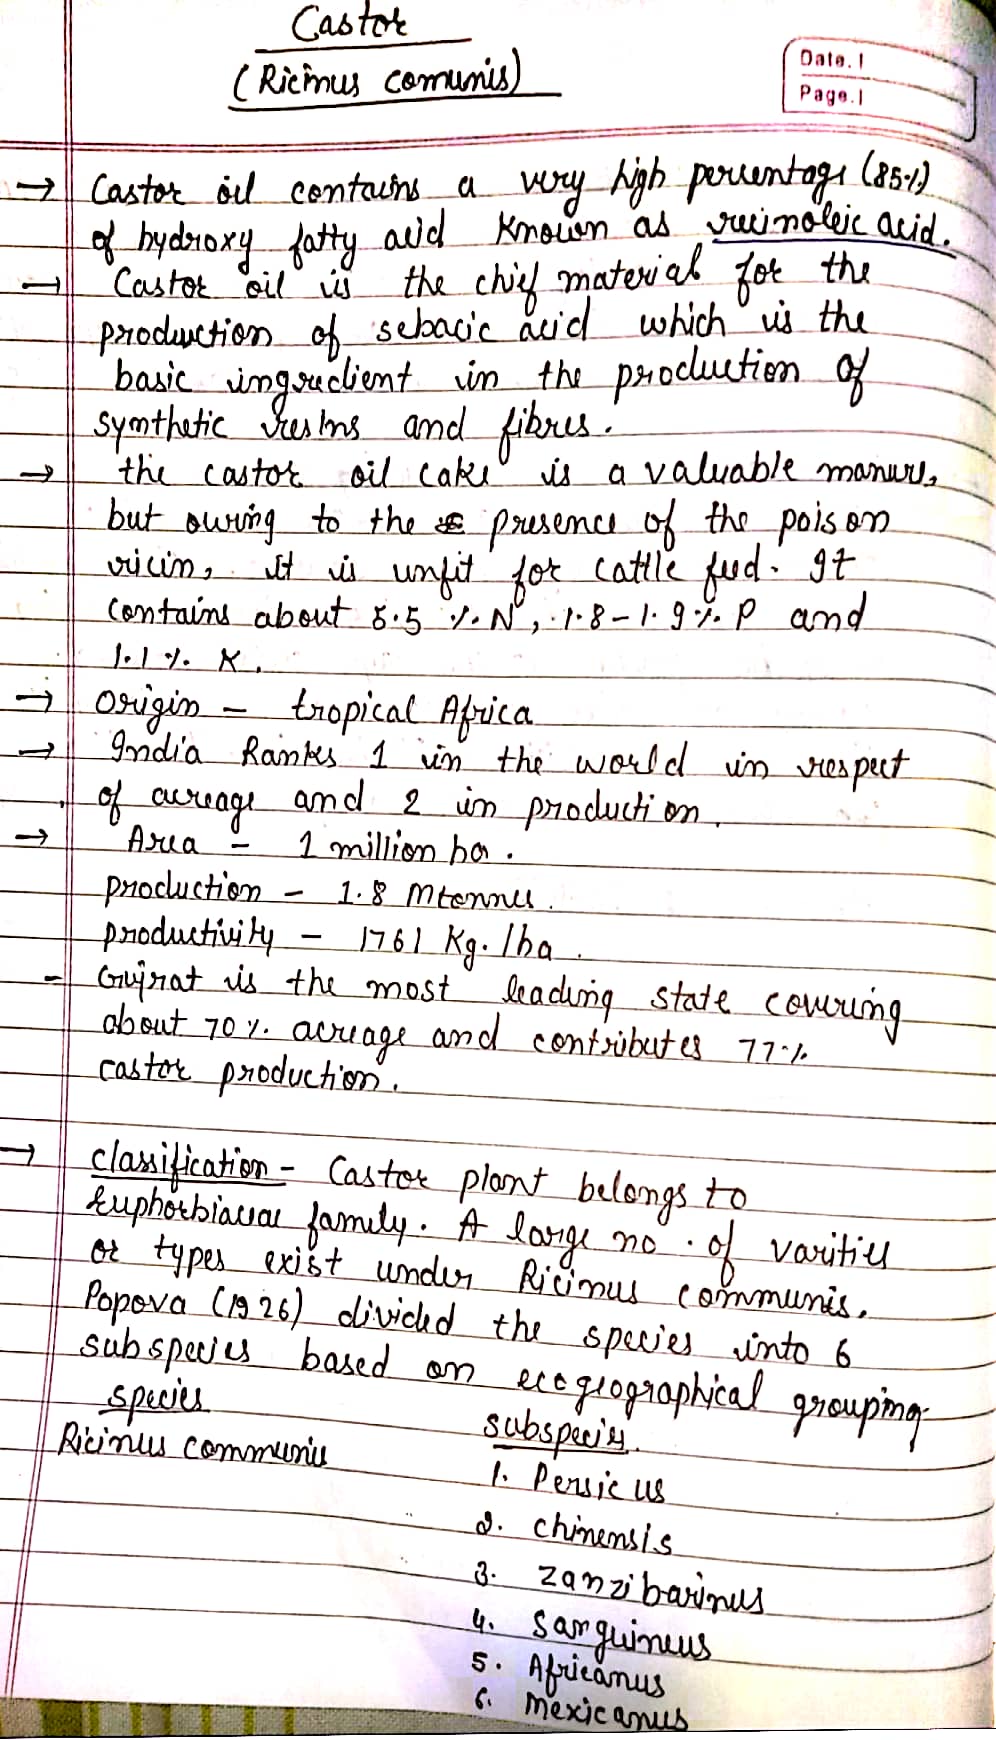 Castor
(Ricinus comunis)
Date.
Page.
→ Castor oil contains a very high percentage (85%)
of hydroxy fatty acid known as recinoleic acid.
→ Castor oil is the chief material for the
production of sebacic acid which is the
basic ingredient in the production of
synthetic resins and fibres.
→ the castor oil cake is a valuable manure,
but owing to the presence of the poison
ricin, it is unfit for cattle feed. It
contains about 5.5 % N, 1.8-1.9% P and
1.1% K.
→ Origin - tropical Africa
→ India Rankes 1 in the world in respect
of acreage and 2 in production.
→ Area - 1 million ha.
production - 1.8 Mtonnes.
productivity - 1761 Kg./ha.
- Gujrat is the most leading state covering
about 70%. acreage and contributes 77%
castor production.
→ classification - Castor plant belongs to
Euphorbiaceae family. A large no. of varities
or types exist under Ricinus communis.
Popova (1926) divided the species into 6
subspecies based on ecogeographical grouping.
species subspecies.
Ricinus communis
1. Persicus
2. chinensis
3. zanzibarinus
4. Sanguineus
5. Africanus
6. mexicanus